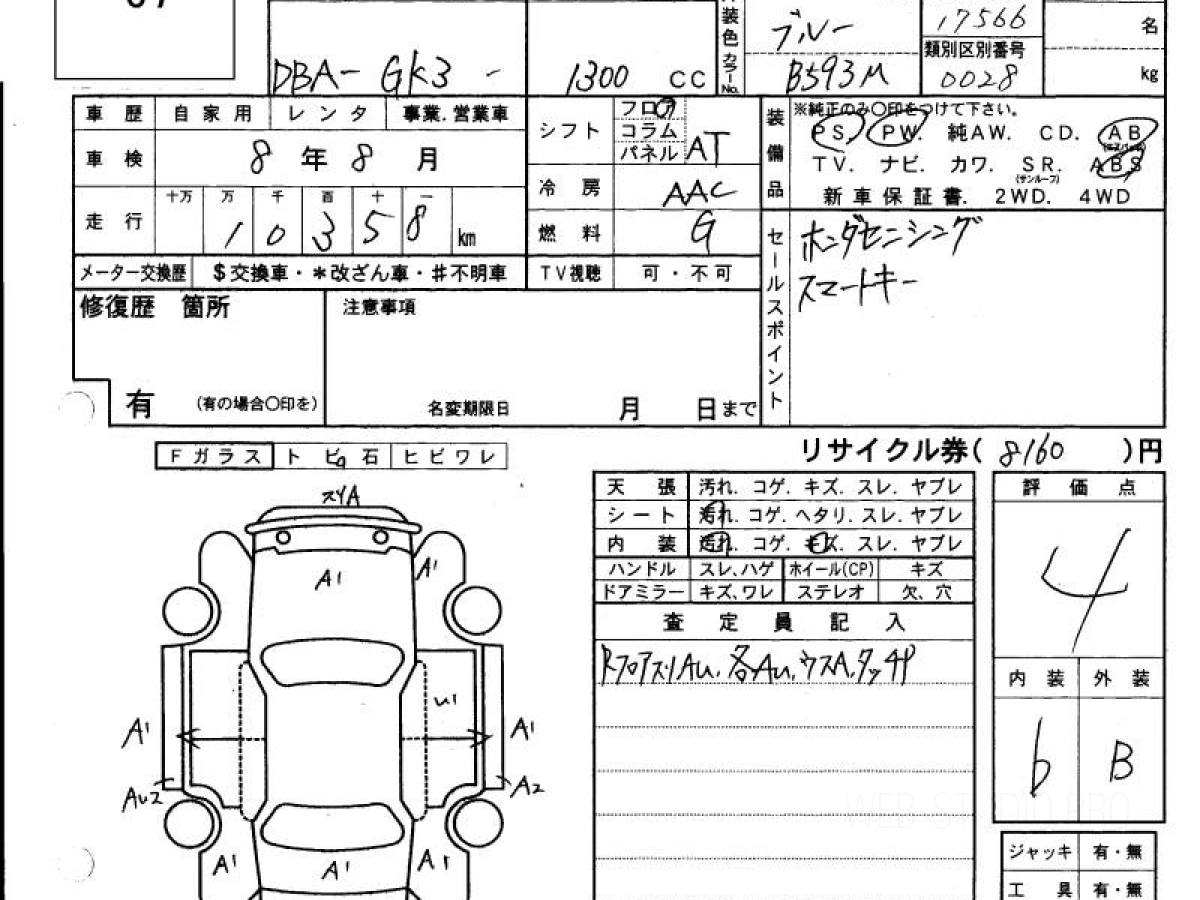 装色 ブルー 17566 名
カラーNo. B593M 類別区別番号 0028 kg
DBA- GK3 - 1300 CC
車歴 自家用 レンタ 事業.営業車
車検 8年8月
十万 万 千 百 十 一
走行 1 0 3 5 8 km
メーター交換歴 $交換車・*改ざん車・#不明車
シフト フロア コラム パネル AT
冷房 AAC
燃料 G
TV視聴 可・不可
装備品 ※純正のみ○印をつけて下さい。
PS. PW. 純AW. CD. AB(エアバッグ)
TV. ナビ. カワ. SR.(サンルーフ) ABS
新車保証書. 2WD. 4WD
セールスポイント ホンダセンシング
スマートキー
修復歴 箇所
有 (有の場合○印を)
注意事項
名変期限日 月 日まで
リサイクル券(8160)円
Fガラス トビ石 ヒビワレ
スリA
A1 A1
A1 U1 A1
AU2 A2
A1 A1 A1
天張 汚れ. コゲ. キズ. スレ. ヤブレ
シート 汚れ. コゲ. ヘタリ. スレ. ヤブレ
内装 汚れ. コゲ. キズ. スレ. ヤブレ
ハンドル スレ、ハゲ ホイール(CP) キズ
ドアミラー キズ、ワレ ステレオ 欠、穴
査定員記入
RフロアスリAU. 各AU. ウスA. タッチP
評価点
4
内装 外装
b B
ジャッキ 有・無
工具 有・無